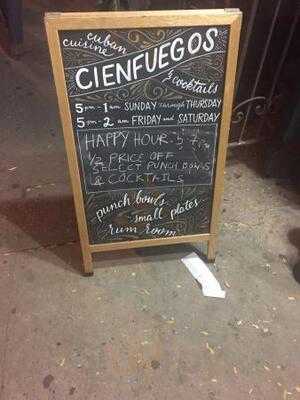 cuban
cuisine
CIENFUEGOS
& cocktails
5pm - 1am SUNDAY through THURSDAY
5pm - 2am FRIDAY and SATURDAY
HAPPY HOUR - 5-7pm
1/2 PRICE OFF
SELECT PUNCH BOWLS
& COCKTAILS
punch bowls
small plates
rum room